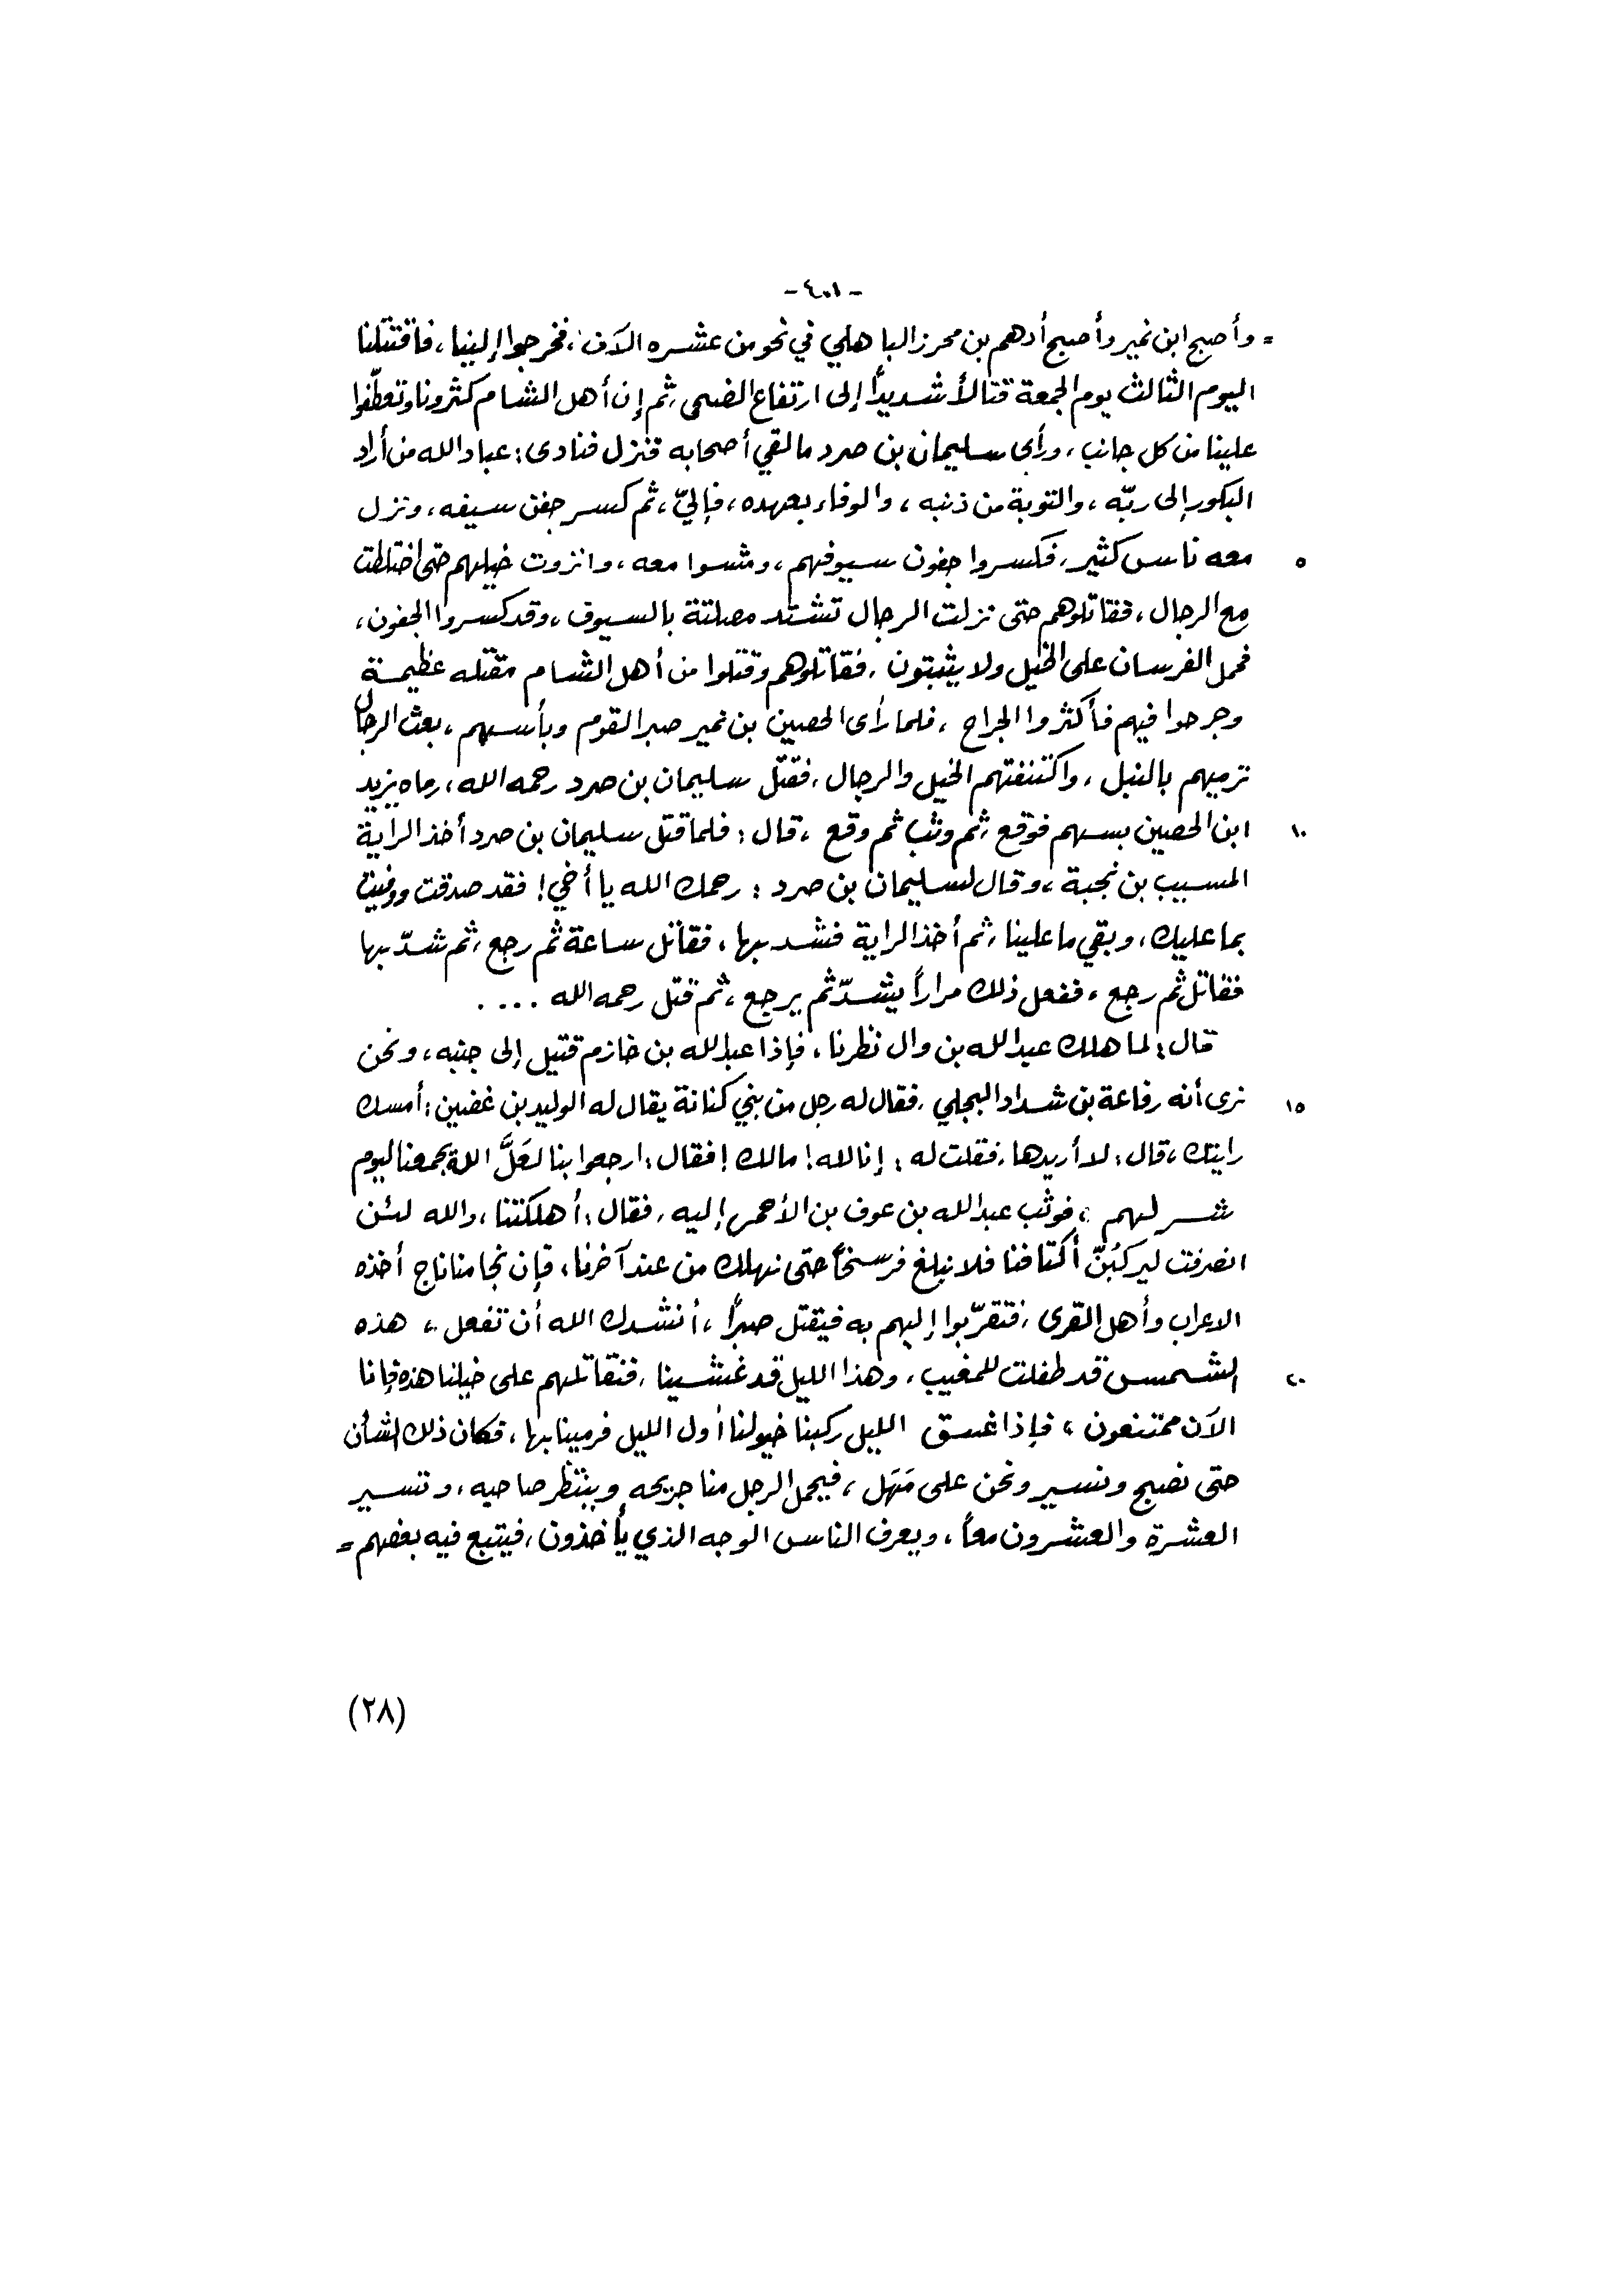 - ٤٠١ -
= وأصبح ابن نمير وأصبح أدهم بن محرز الباهلي في نحو من عشره الآف ، فخرجوا إلينا ، فاقتتلنا
اليوم الثالث يوم الجمعة قتالاً شديداً إلى ارتفاع الضحى ، ثم إن أهل الشام كثرونا وتعطّفوا
علينا من كل جانب ، ورأى سليمان بن صرد ما لقي أصحابه فنزل فنادى : عباد الله من أراد
البكور إلى ربّه ، والتوبة من ذنبه ، والوفاء بعهده ، فإليّ ، ثم كسر جفن سيفه ، ونزل
٥ معه ناس كثير ، فكسروا جفون سيوفهم ، ومشوا معه ، وانزوت خيلهم حتى اختلطت
مع الرجال ، فقاتلوهم حتى نزلت الرجال تشتد مصلتة بالسيوف ، وقد كسروا الجفون ،
فحمل الفرسان على الخيل ولا يثبتون ، فقاتلوهم وقتلوا من أهل الشام مقتله عظيمة
وجرحوا فيهم فأكثروا الجراح ، فلما رأى الحصين بن نمير صبر القوم وبأسهم ، بعث الرجال
ترميهم بالنبل ، واكتنفتهم الخيل والرجال ، فقتل سليمان بن صرد رحمه الله ، رماه يزيد
١٠ ابن الحصين بسهم فوقع ، ثم وثب ثم وقع ، قال : فلما قتل سليمان بن صرد أخذ الراية
المسيب بن نجبة ، وقال لسليمان بن صرد : رحمك الله يا أخي ! فقد صدقت ووفيت
بما عليك ، وبقي ما علينا ، ثم أخذ الراية فشد بها ، فقاتل ساعة ثم رجع ، ثم شدّ بها
فقاتل ثم رجع ، ففعل ذلك مراراً يشدّ ثم يرجع ، ثم قتل رحمه الله ....
قال : لما هلك عبد الله بن وال نظرنا ، فإذا عبد الله بن خازم قتيل إلى جنبه ، ونحن
١٥ نرى أنه رفاعة بن شداد البجلي ، فقال له رجل من بني كنانة يقال له الوليد بن غضين : أمسك
رايتك ، قال : لا أريدها ، فقلت له : إنا لله ! مالك ! فقال : ارجعوا بنا لعَلَّ الله يجمعنا ليوم
شر لهم ، فوثب عبد الله بن عوف بن الأحمر إليه ، فقال : أهلكتنا ، والله لئن
انصرفت ليركبُنّ أكتافنا فلا نبلغ فرسخاً حتى نهلك من عند آخرنا ، فإن نجا منا ناج أخذه
الاعراب وأهل القرى ، فتقرّبوا إليهم به فيقتل صبراً ، أنشدك الله أن تفعل ، هذه
٢٠ الشمس قد طفلت للمغيب ، وهذا الليل قد غشينا ، فنقاتلهم على خيلنا هذه فإنا
الآن ممتنعون ، فإذا غسق الليل ركبنا خيولنا أول الليل فرمينا بها ، فكان ذلك الشأن
حتى نصبح ونسير ونحن على مَهَل ، فيحمل الرجل منا جريحه وينتظر صاحبه ، وتسير
العشرة والعشرون معاً ، ويعرف الناس الوجه الذي يأخذون ، فيتبع فيه بعضهم =
(٢٨)